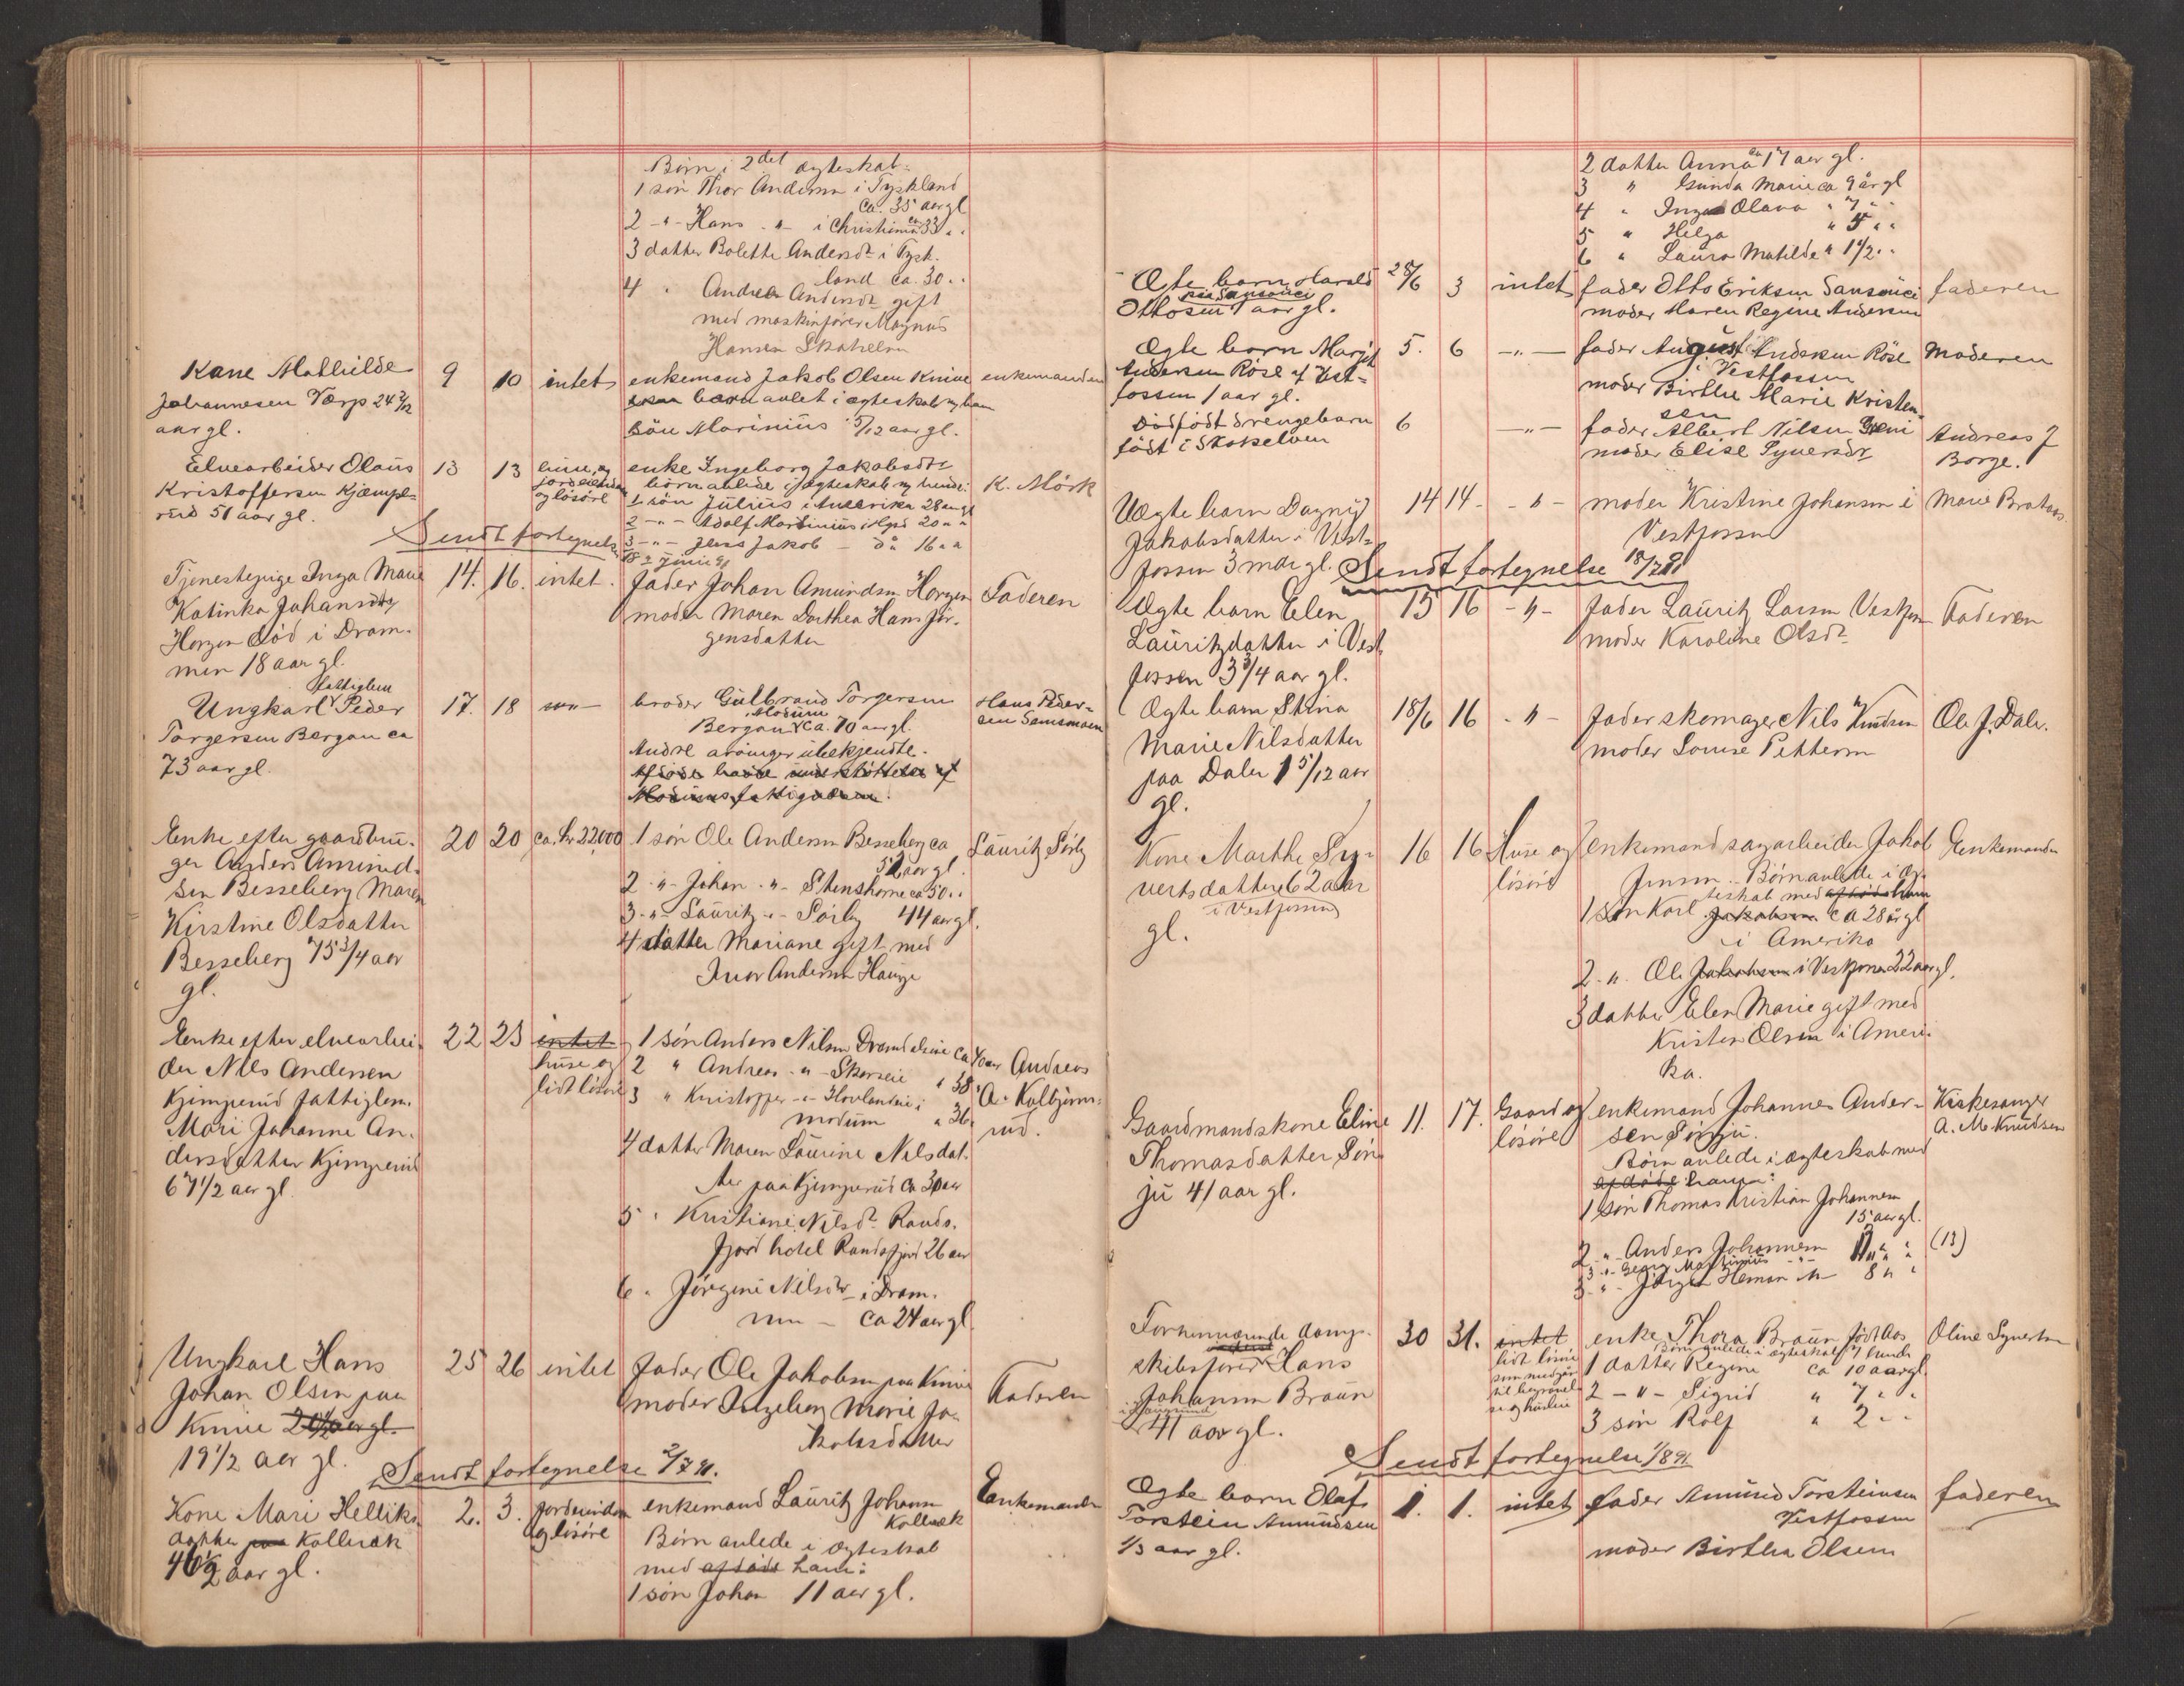 Børn i 2det ægteskab:
1 søn Thor Andersen i Tyskland
ca. 35 aar gl
2 -"- Hans -"- i Christiania ca 33 " "
3 datter Bolette Andersdt i Tysk-
land ca. 30 " "
4 " Andrea Andersdt gift
med maskinfører Magnus
Hansen
Kone Mathilde
Johannesen Verp 24 2/12
aar gl.
9 10 intet
enkemand Jakob Olsen Knive
børn avlet i ægteskab m/ ham
søn Marinius 5/12 aar gl.
enkemanden
Elvearbeider Olaus
Kristoffersen Kjæmpe-
rud 51 aar gl.
13 13
huse og
jordeiendom
og løsøre
enke Ingeborg Jakobsdtr
børn avlede i ægteskab m/ hende:
1 søn Julius i Amerika 28 aar gl
2 -"- Adolf Martinius 20 " "
3 -"- Jens Jakob - do 16 " "
K. Mörk
Sendt fortegnelse
18 juni 91
Tjenestepige Inga Marie
Katinka Johansdtr
Horgen død i Dram-
men 18 aar gl.
14. 16. intet.
fader Johan Amundsen Horgen
moder Maren Dorthea Hans Jör-
gensdatter
Faderen
fattiglem
Ungkarl Peder
Torgersen Bergan ca
73 aar gl.
17. 18
broder Gulbrand Torgersen
Modum
Bergan ca. 70 aar gl.
Andre arvinger ubekjendte.
Afdøde havde understøttelse af
Modums fattigvæsen.
Hans Peder-
sen
Enke efter gaardbru-
ger Anders Amund-
sen Besseberg Maren
Kirstine Olsdatter
Besseberg 75 3/4 aar
gl.
20 20 ca. kr 22,000
1 søn Ole Andersen Besseberg ca
52 aar gl.
2 -"- Johan -"- Stenshorne ca 50 " "
3 -"- Lauritz -"- Sørby 44 aar gl.
4 datter Mariane gift med
Iver Andersen Hauge
Lauritz Sørby
Enke efter elvearbei-
der Nils Andersen
Kjimperud fattiglem
Mari Johanne An-
dersdatter Kjimperud
67 1/2 aar gl.
22 23 intet
huse og
lidt løsøre
1 søn Anders Nilsen ca 40 aar
2 " Andreas -"- " 38 "
3 " Kristoffer -"- Hovlandeie i
modum " 36 "
4 datter Maren Laurine Nilsdat-
ter paa Kjimperud ca 30 aar
5 " Kristiane Nilsdt Rands-
fjord hotel Randsfjord 26 aar
6 " Jørgine Nilsdtr i Dram-
men - ca 24 aar gl
Andreas
A. Kolbjørns-
rud.
Ungkarl Hans
Johan Olsen paa
Knive 20 1/2 aar gl.
19 1/2 aar gl.
25 26 intet
fader Ole Jakobsen paa Knive
moder Ingeborg Marie Ja-
kobsdatter
Faderen
Sendt fortegnelse 2/7 91.
Kone Mari Helliks-
datter paa Kollerak
46 1/2 aar gl.
2. 3.
jordeiendom
og løsøre
enkemand Lauritz Johansen
Kollerak
Børn avlede i ægteskab
med afdøde ham:
1 søn Johan 11 aar gl.
Enkemanden
2 datter Anna ca 17 aar gl.
3 " Gunda Marie ca 9 år gl
4 " Inga Olava " 7 " "
5 " Helga " 5 " "
6 " Laura Matilde " 1 1/2 " "
Ægte barn Harald
paa Sansouci
Ottosen 1 aar gl.
28/6 3 intet
fader Otto Eriksen Sansouci
moder Maren Regine Andersen
faderen
Ægte barn Marjit
Andersen Röse af Vest-
fossen 1 aar gl.
5. 6 -"-
fader August Andersen Röse
i Vestfossen
moder Birthe Marie Kristen-
sen
Moderen
Dødfødt drengebarn
født i Skotselven
6 -"-
fader Albert Nilsen
moder Elise Syversdr
Andreas J
Borge.
Uægte barn Dagny
Jakobsdatter i Vest-
fossen 3 mdr gl.
14 14 -"-
moder Kristine Johansen i
Vestfossen
Marie
Sendt fortegnelse 18/7 91
Ægte barn Elen
Lauritzdatter i Vest-
fossen 3 3/4 aar gl.
15 16 -"-
fader Lauritz Larsen Vestfossen
moder Karoline Olsdt
Faderen
Ægte barn Stina
Marie Nilsdatter
paa Dalen 1 5/12 aar
gl.
18/6 16 -"-
fader skomager Nils Knudsen
moder Louise Pettersen
Ole J. Dalen.
Kone Marthe Sy-
vertsdatter 62 aar
i Vestfossen
gl.
16 16 Huse og
løsøre
enkemand sagarbeider Jakob
Jensen. Børn avlede i æg-
teskab med afdøde ham
1 søn Karl Jakobsen ca 28 år gl
i Amerika
2 -"- Ole Jakobsen i Vestfossen 22 aar gl.
3 datter Elen Marie gift med
Kristen Olsen i Ameri-
ka.
Enkemanden
Gaardmandskone Eline
Thomasdatter Søn-
ju 41 aar gl.
11. 17. Gaard og
løsøre
enkemand Johannes Ander-
sen Sønju.
Børn avlede i ægteskab med
afdøde ham:
1 søn Thomas Kristian Johannesen
15 aar gl.
2 -"- Anders Johannesen " " (13)
3 -"- Georg Martinius -"- 11 " "
3 -"- Jørgen Herman -"- 8 " "
Kirkesanger
A. M. Knudsen
Forhenværende damp-
skibsfører Hans
Johansen Braun
41 aar gl.
30 31. intet
lidt løsøre
som medgår
til begravel-
se og husleie
enke Thora Braun født Aas
Børn avlede i ægteskab m/ hende
1 datter Regine ca 10 aar gl.
2 -"- Sigrid " 7 " "
3 søn Rolf " 2 " "
Oline Syvertsen
Sendt fortegnelse 1/8 91
Ægte barn Olaf
Torstein Amundsen
1/3 aar gl.
1. 1. intet
fader Amund Torsteinsen
Vestfossen
moder Birthea Olsen
faderen